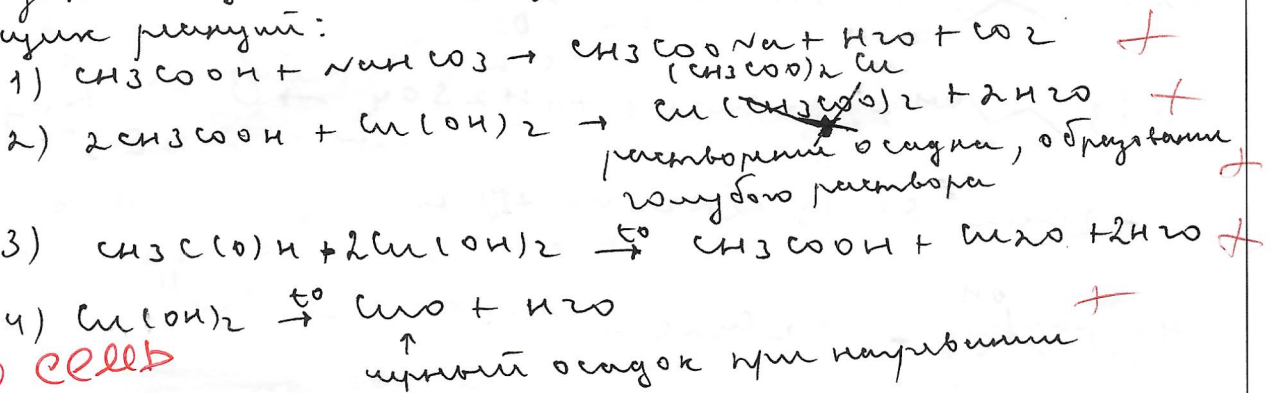 щих реакций:
1) CH3COOH + NaHCO3 → CH3COONa + H2O + CO2 +
(CH3COO)2 Cu
2) 2CH3COOH + Cu(OH)2 → Cu(CH3COO)2 + 2H2O +
растворение осадка, образование +
голубого раствора
3) CH3C(O)H + 2Cu(OH)2 t° → CH3COOH + Cu2O + 2H2O +
4) Cu(OH)2 t° → CuO + H2O +
семь ↑
чёрный осадок при нагревании